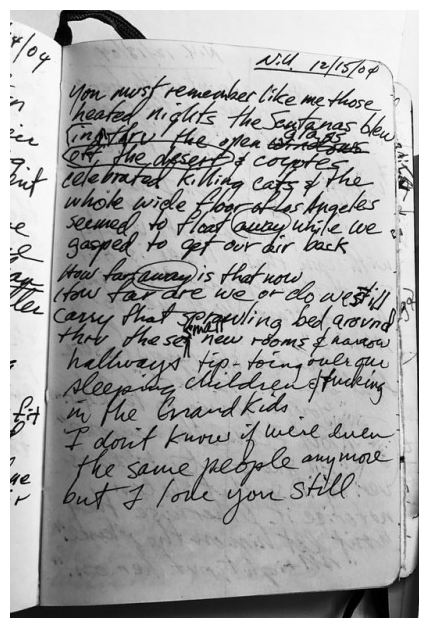 N.H. 12/15/04
you must remember like me those
heated nights the Santanas blew
in thru the open glass windows
off the desert & coyotes
celebrated killing cats & the
whole wide floor of Los Angeles
seemed to float away while we
gasped to get our air back
How far away is that now
How far are we or do we still
carry that sprawling bed around
thru these small new rooms & narrow
hallways tip-toeing over our
sleeping children & tucking
in the Grand Kids
I don't know if we're even
the same people anymore
but I love you still
4/04